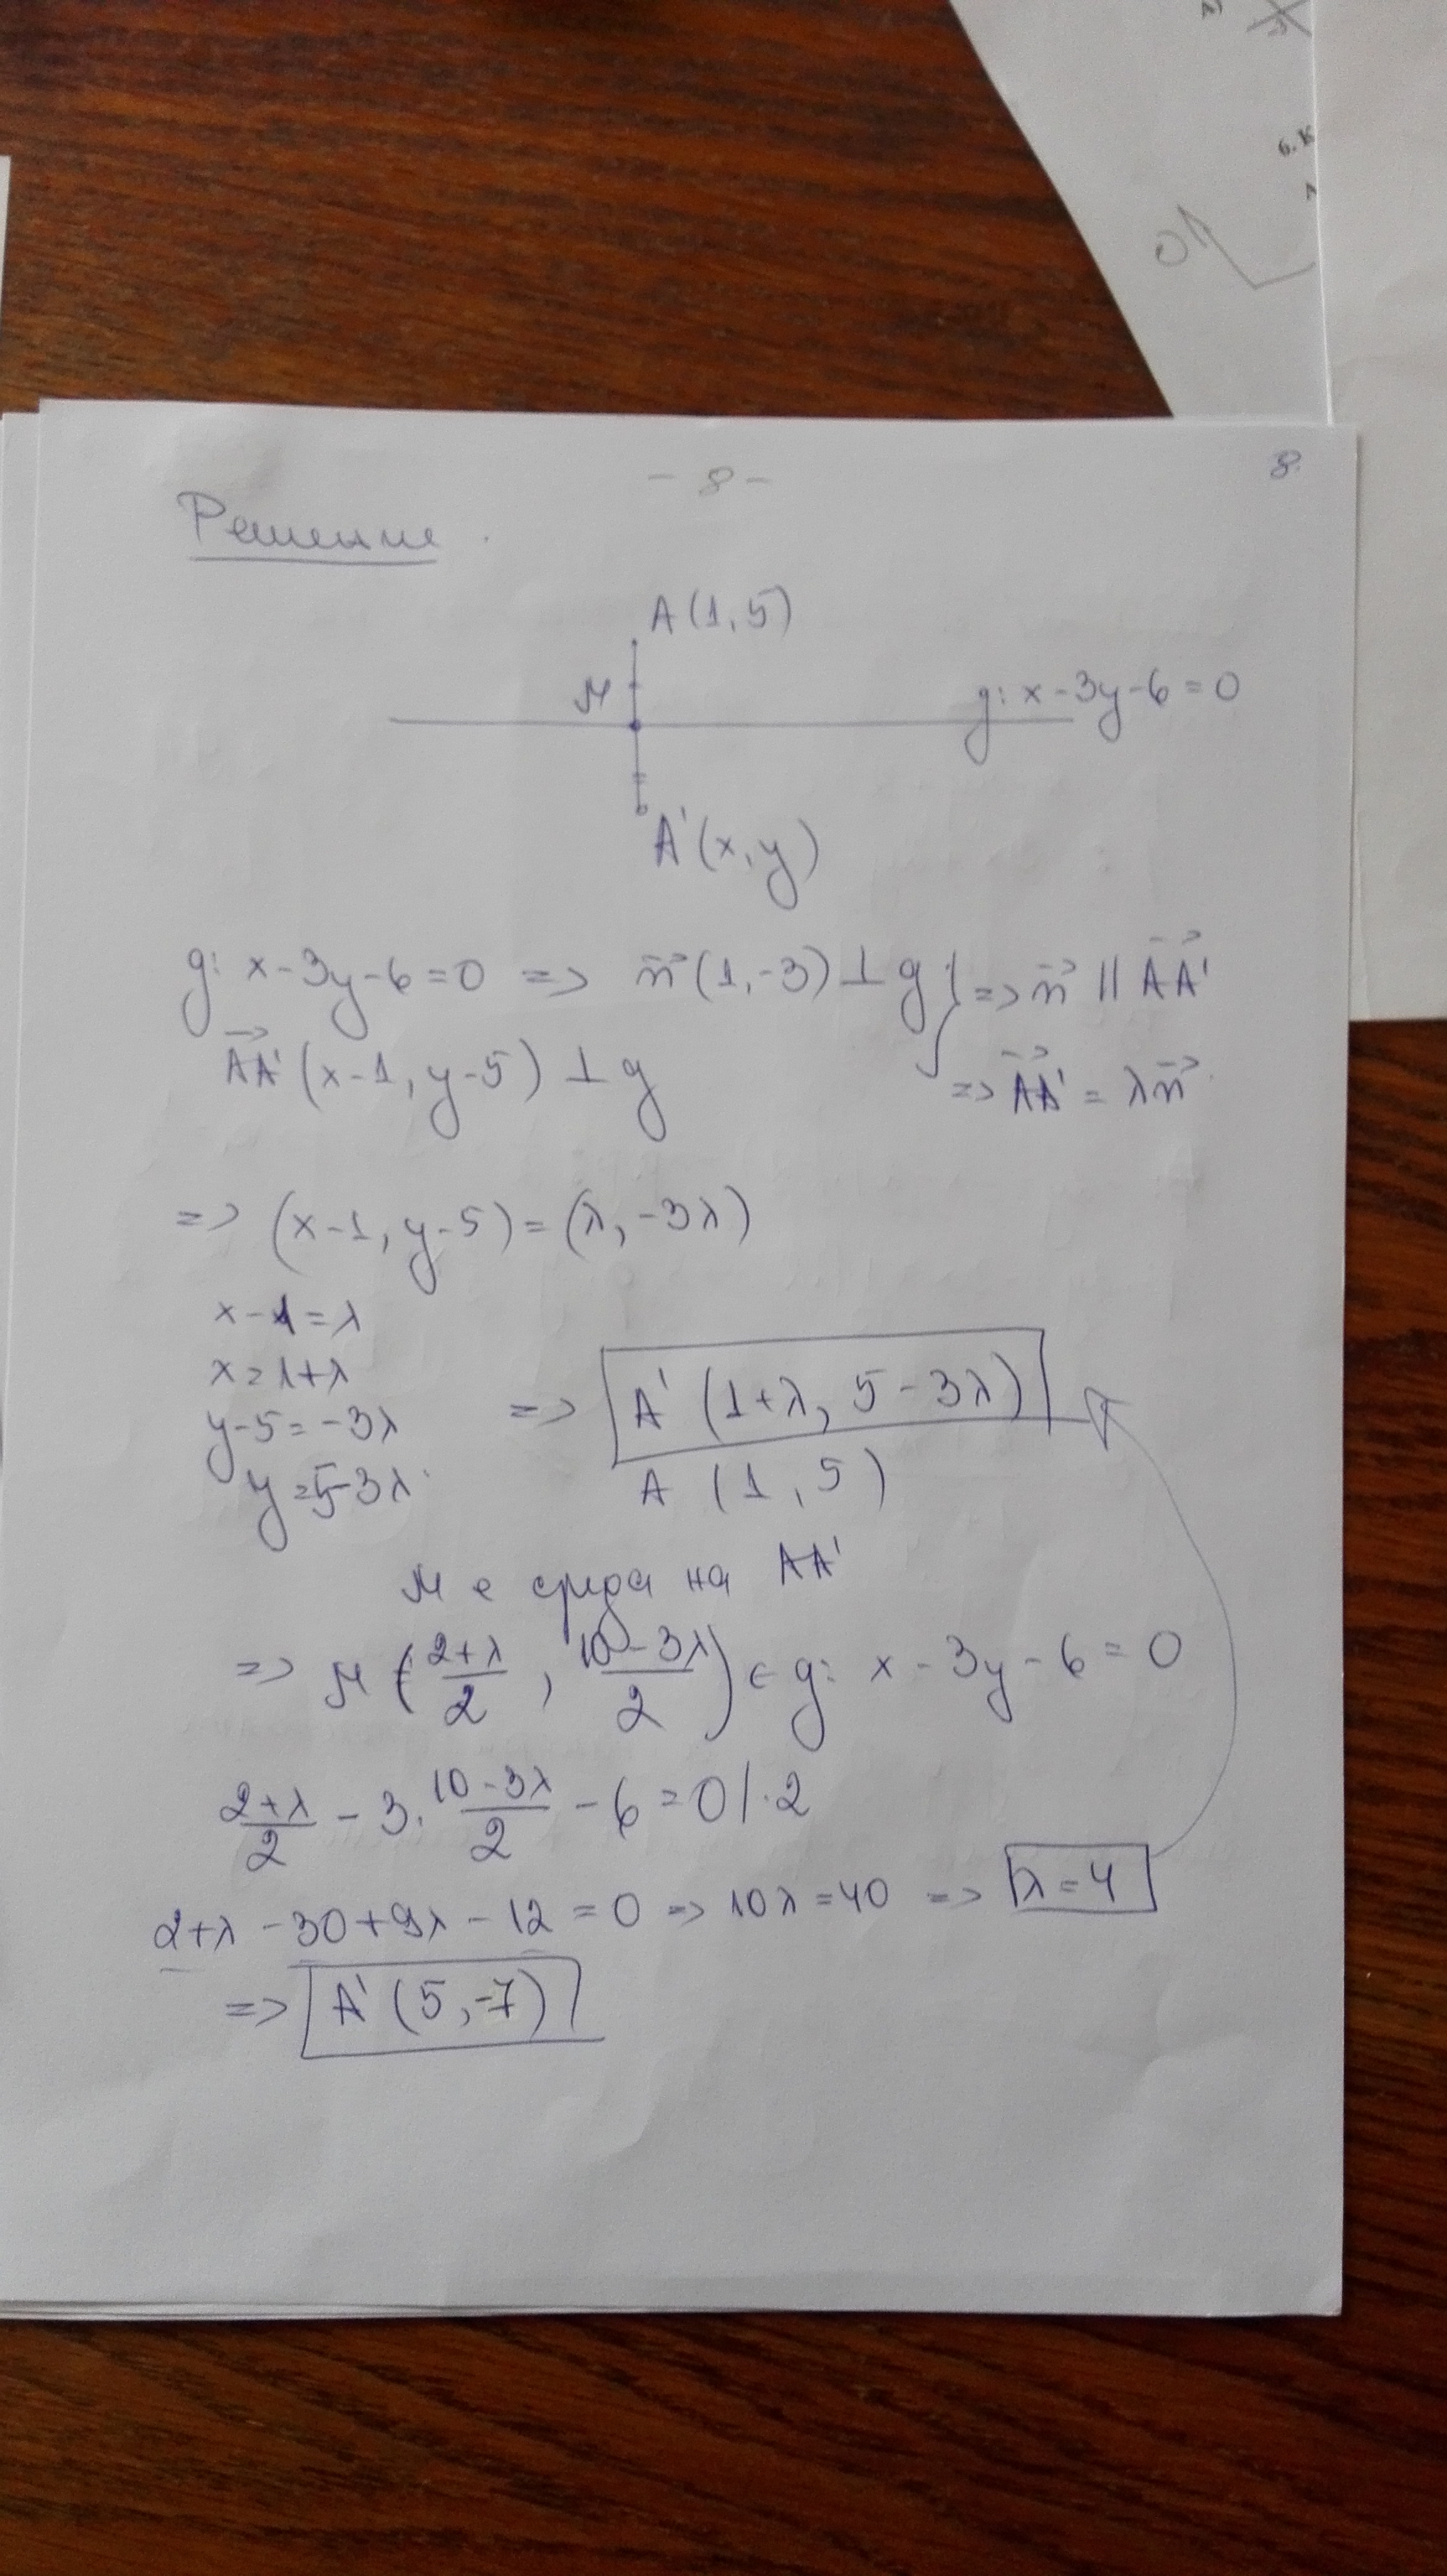 - 8 -
8.
Решение.
A(1,5)
M
g: x-3y-6=0
A'(x,y)
g: x-3y-6=0 => n⃗(1,-3) ⊥ g } => n⃗ || AA'⃗
AA'⃗(x-1, y-5) ⊥ g
=> AA'⃗ = λn⃗
=> (x-1, y-5) = (λ, -3λ)
x-1=λ
x=1+λ
y-5=-3λ
y=5-3λ
=> A'(1+λ, 5-3λ)
A (1,5)
M е среда на AA'
=> M((2+λ)/2, (10-3λ)/2) ∈ g: x-3y-6=0
(2+λ)/2 - 3.(10-3λ)/2 - 6 = 0 /.2
2+λ-30+9λ-12=0 => 10λ=40 => λ=4
=> A'(5,-7)
6. К